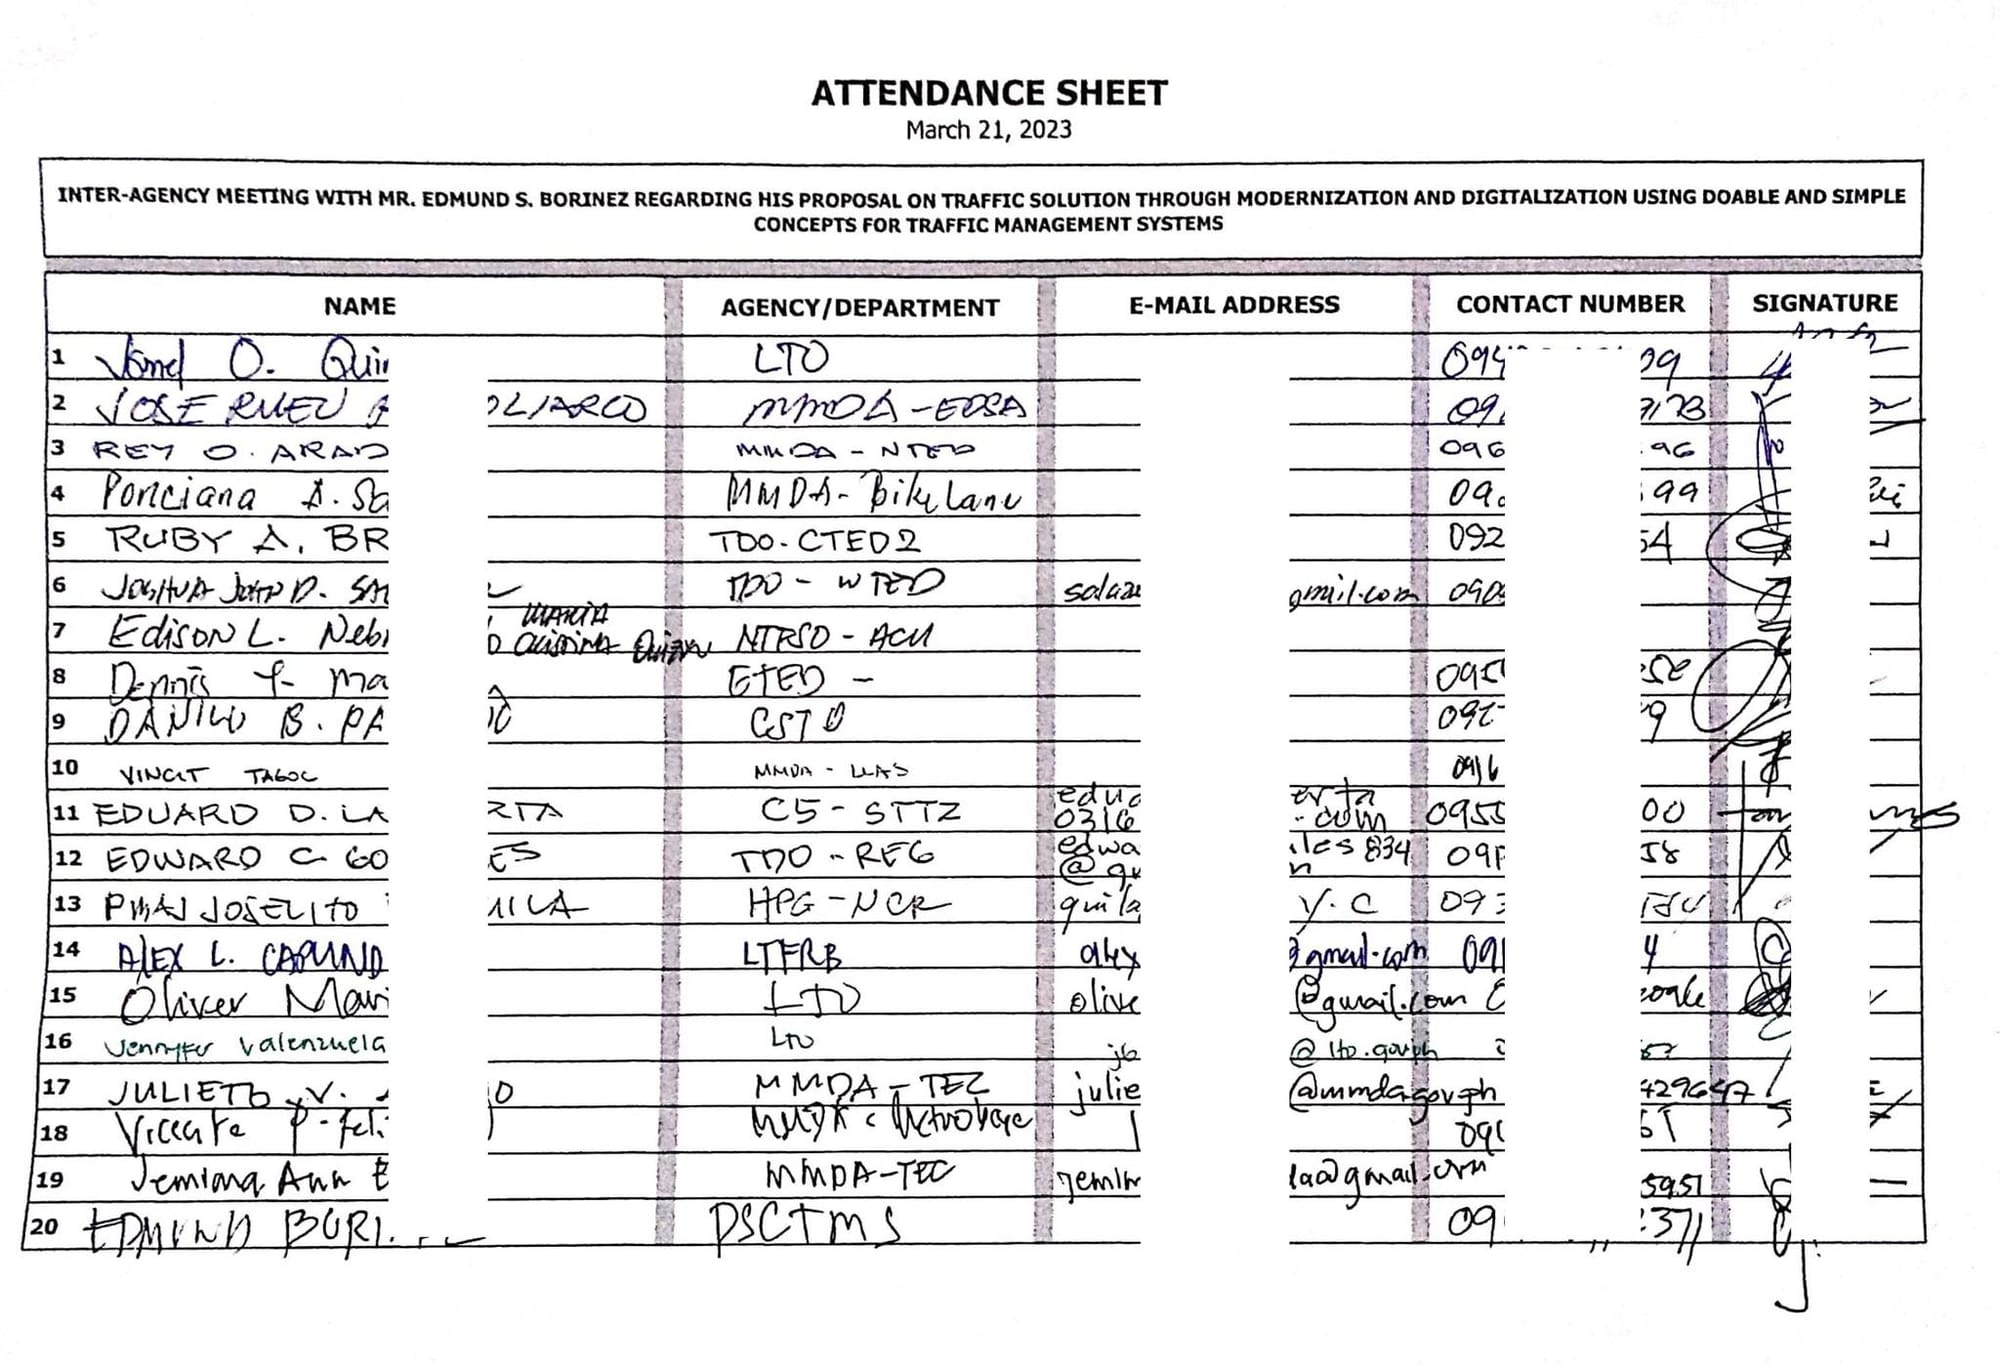 ATTENDANCE SHEET
March 21, 2023
INTER-AGENCY MEETING WITH MR. EDMUND S. BORINEZ REGARDING HIS PROPOSAL ON TRAFFIC SOLUTION THROUGH MODERNIZATION AND DIGITALIZATION USING DOABLE AND SIMPLE
CONCEPTS FOR TRAFFIC MANAGEMENT SYSTEMS
NAME AGENCY/DEPARTMENT E-MAIL ADDRESS CONTACT NUMBER SIGNATURE
1 O. Qui LTO 094 09
2 JOSE OLIARCO MMDA-EDSA 09
3 REY O. ARAD MMDA - NTED 096 96
4 Ponciana A. Sa MMDA- Bike Lane 09 99
5 RUBY A. BR TDO-CTED2 092 54
6 JOSHUA JOHN D. SA TDO - WTED salaz gmail.com 090
MARIA
7 Edison L. Neb NTRSO - ACU
8 Dennis Y. Ma ETED - 095
9 DANILO B. PA CSTO 092 9
10 VINCIT TAGOC MMDA - LLAS 0916
11 EDUARD D. LA RTA C5 - STTZ edu erta
0316 .com 0955 00
12 EDWARD C GO ES TDO - REG edwa les834 09 58
@ g
13 PMAJ JOSELITO MILA HPG - NCR quila Y.C 093
14 ALEX L. CAPUND LTFRB alex @gmail.com 09 4
15 Oliver Mari LTO olive @gmail.com
16 Jennyfer Valenzuela LTO jb @lto.gov.ph
17 JULIETO V. O MMDA - TEZ julie @mmda.gov.ph 429647
18 Vicente P. Feli MMDA 09
19 Jemima Ann E MMDA-TEC jemim laa@gmail.com 5951
20 EDMUND BORI PSCTMS 09 371